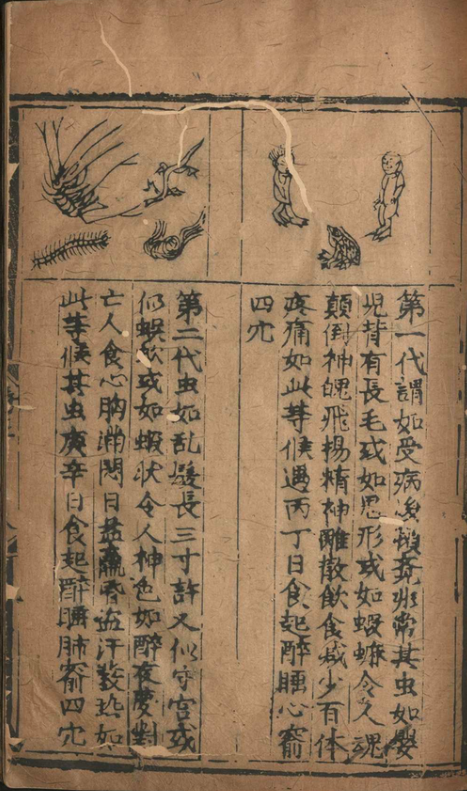 第一代謂如受病後非常其虫如嬰
児背有長毛或如思形或如蝦蟆令人魂
顛倒神魄飛揚精神離散飲食减少百体
疼痛如此等候遇丙丁日食起醉睡心俞
四穴
第二代虫如乱髮長三寸許又似守宮或
似蜈蚣或如蝦状令人神色如醉夜夢對
亡人食心胸滿悶日羸盗汗發如
此等候其虫庚辛日食起醉睡肺俞四穴